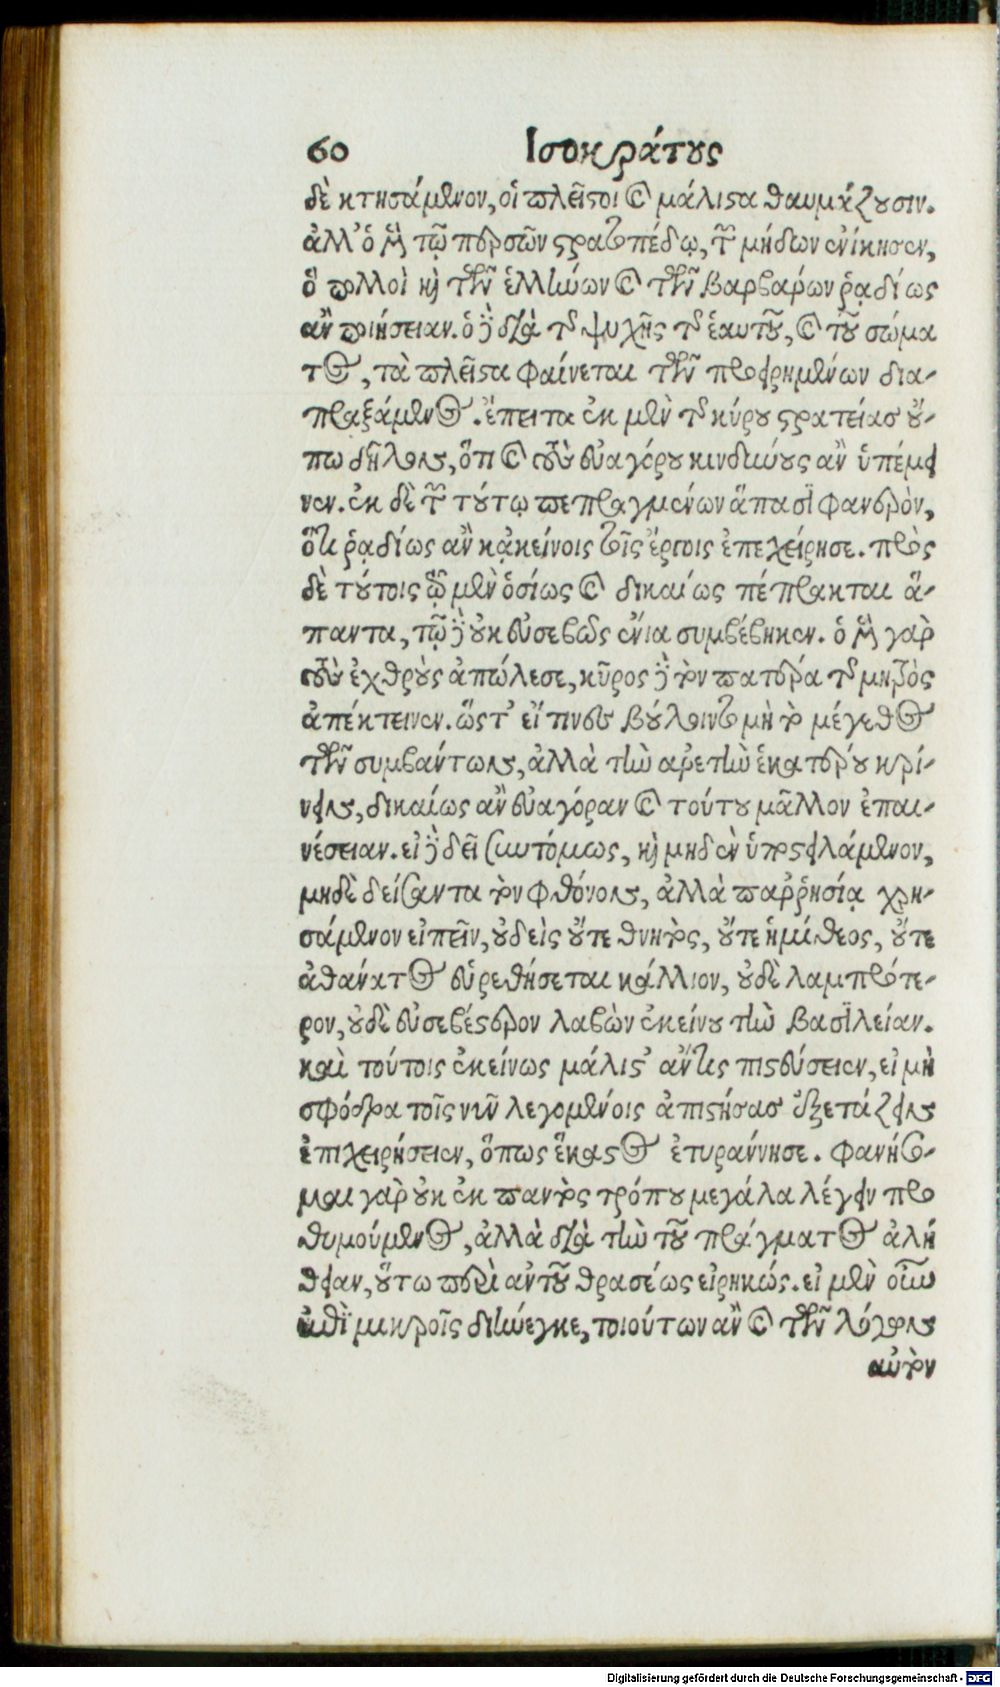 60 Ισοκράτους
δὲ κτησάμενον, οἱ πλεῖστοι καὶ μάλιστα θαυμάζουσιν.
ἀλλ' ὁ μὲν τῷ περσῶν στρατοπέδῳ, τὸ μήδων ἐνίκησεν,
ὃ πολλοὶ καὶ τῶν ἑλλήνων καὶ τῶν βαρβάρων ῥᾳδίως
ἂν ποιήσειαν. ὁ δὲ διὰ τῆς ψυχῆς τῆς ἑαυτοῦ, καὶ τοῦ σώμα
τος, τὰ πλεῖστα φαίνεται τῶν προειρημένων δια-
πραξάμενος. ἔπειτα ἐκ μὲν τῆς κύρου στρατείας οὔ-
πω δῆλον, ὅτι καὶ τοὺς εὐαγόρου κινδύνους ἂν ὑπέμει
νεν. ἐκ δὲ τῶν τούτῳ πεπραγμένων ἅπασι φανερὸν,
ὅτι ῥᾳδίως ἂν κᾀκείνοις τοῖς ἔργοις ἐπεχείρησε. πρὸς
δὲ τούτοις τῷ μὲν ὁσίως καὶ δικαίως πέπρακται ἅ-
παντα, τῷ δὲ οὐκ εὐσεβῶς ἔνια συμβέβηκεν. ὁ μὲν γὰρ
τοὺς ἐχθροὺς ἀπώλεσε, κῦρος δὲ τὸν πατέρα τῆς μητρὸς
ἀπέκτεινεν. ὥστ' εἴ τινες βούλοιντο μὴ τὸ μέγεθος
τῶν συμβάντων, ἀλλὰ τὴν ἀρετὴν ἑκατέρου κρί-
νειν, δικαίως ἂν εὐαγόραν καὶ τούτου μᾶλλον ἐπαι-
νέσειαν. εἰ δὲ δεῖ συντόμως, καὶ μηδὲν ὑποστειλάμενον,
μηδὲ δείσαντα τὸν φθόνον, ἀλλὰ παῤῥησίᾳ χρη-
σάμενον εἰπεῖν, οὐδεὶς οὔτε θνητὸς, οὔτε ἡμίθεος, οὔτε
ἀθάνατος εὑρεθήσεται κάλλιον, οὐδὲ λαμπρότε-
ρον, οὐδὲ εὐσεβέστερον λαβὼν ἐκείνου τὴν βασιλείαν.
καὶ τούτοις ἐκείνως μάλιστ' ἄν τις πιστεύσειεν, εἰ μὴ
σφόδρα τοῖς νῦν λεγομένοις ἀπιστήσας ἐξετάζειν
ἐπιχειρήσειεν, ὅπως ἕκαστος ἐτυράννησε. φανήσο-
μαι γὰρ οὐκ ἐκ παντὸς τρόπου μεγάλα λέγειν προ
θυμούμενος, ἀλλὰ διὰ τὴν τοῦ πράγματος ἀλή
θειαν, οὕτω περὶ αὐτοῦ θρασέως εἰρηκώς. εἰ μὲν οὖν
ἐπὶ μικροῖς διήνεγκε, τοιούτων ἂν καὶ τῶν λόγων
αὐτὸν
Digitalisierung gefördert durch die Deutsche Forschungsgemeinschaft - DFG